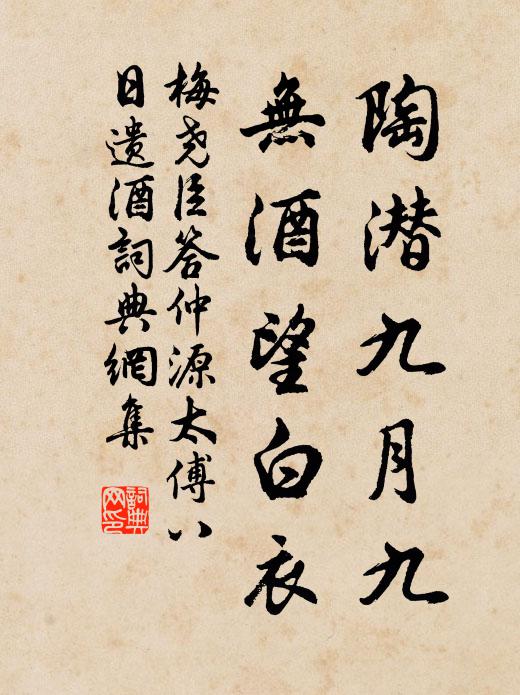 陶潜九月九
無酒望白衣
梅尧臣答仲源太傅八
日遗酒詞典網集
詞典网印